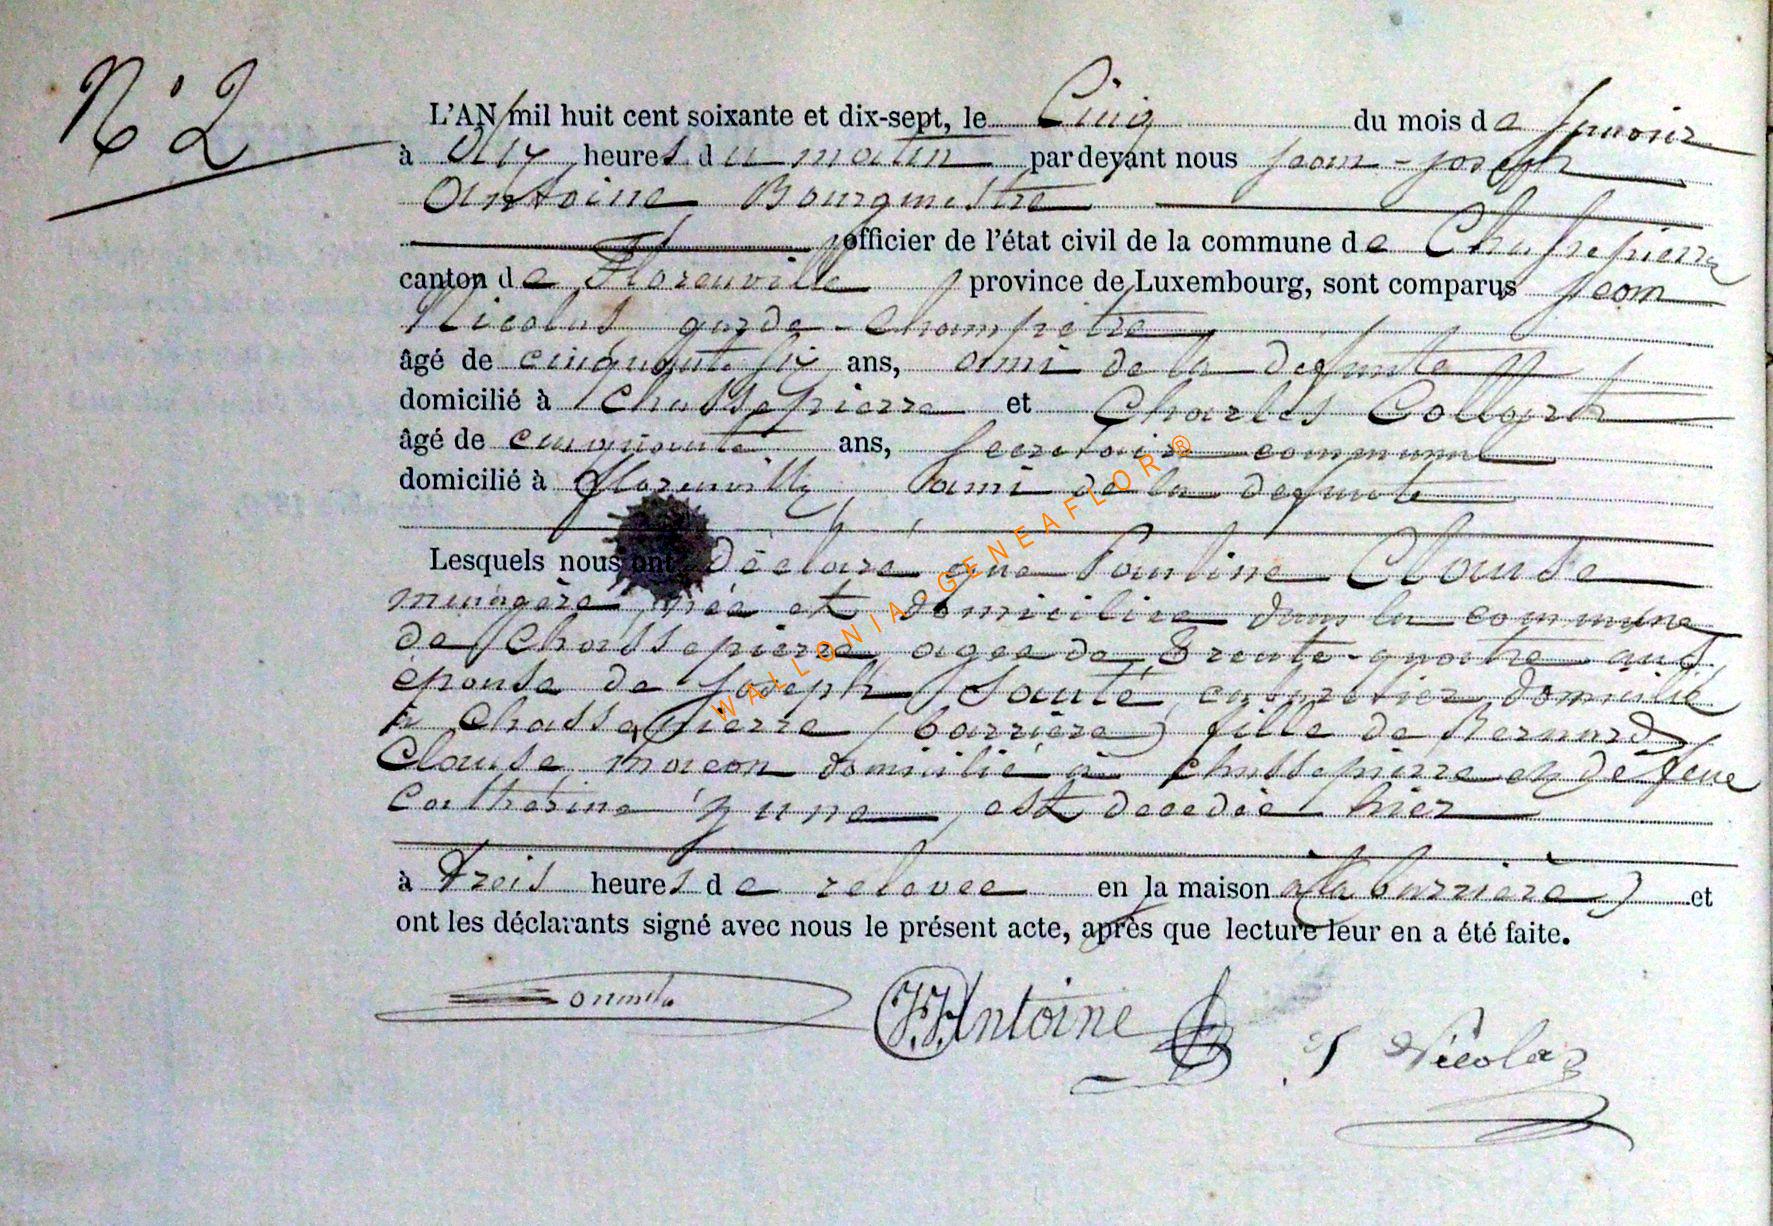 N° 2
L'AN mil huit cent soixante et dix-sept, le Cinq du mois de Janvier
à dix heures du matin pardevant nous Jean-Joseph
Antoine Bourgmestre
officier de l'état civil de la commune de Chassepierre
canton de Florenville province de Luxembourg, sont comparus Jean
Nicolas garde-champêtre
âgé de cinquante six ans, ami de la defunte
domicilié à Chassepierre et Charles Collart
âgé de cinquante ans, secretaire communal
domicilié à Florenville, ami de la defunte
Lesquels nous ont déclaré que Pauline Clause
ménagère, née et domiciliée dans la commune
de Chassepierre, agee de Trente-quatre ans,
épouse de Joseph Sauté, cabaretier, domicilié
à Chassepierre (barrière) fille de Bernard
Clause, maçon domicilié à Chassepierre et de feue
Catherine, est decedée hier
à trois heures de relevee en la maison à la barrière) et
ont les déclarants signé avec nous le présent acte, après que lecture leur en a été faite.
J.J. Antoine J Nicolas
WALLONIA-GENEAFLOR®